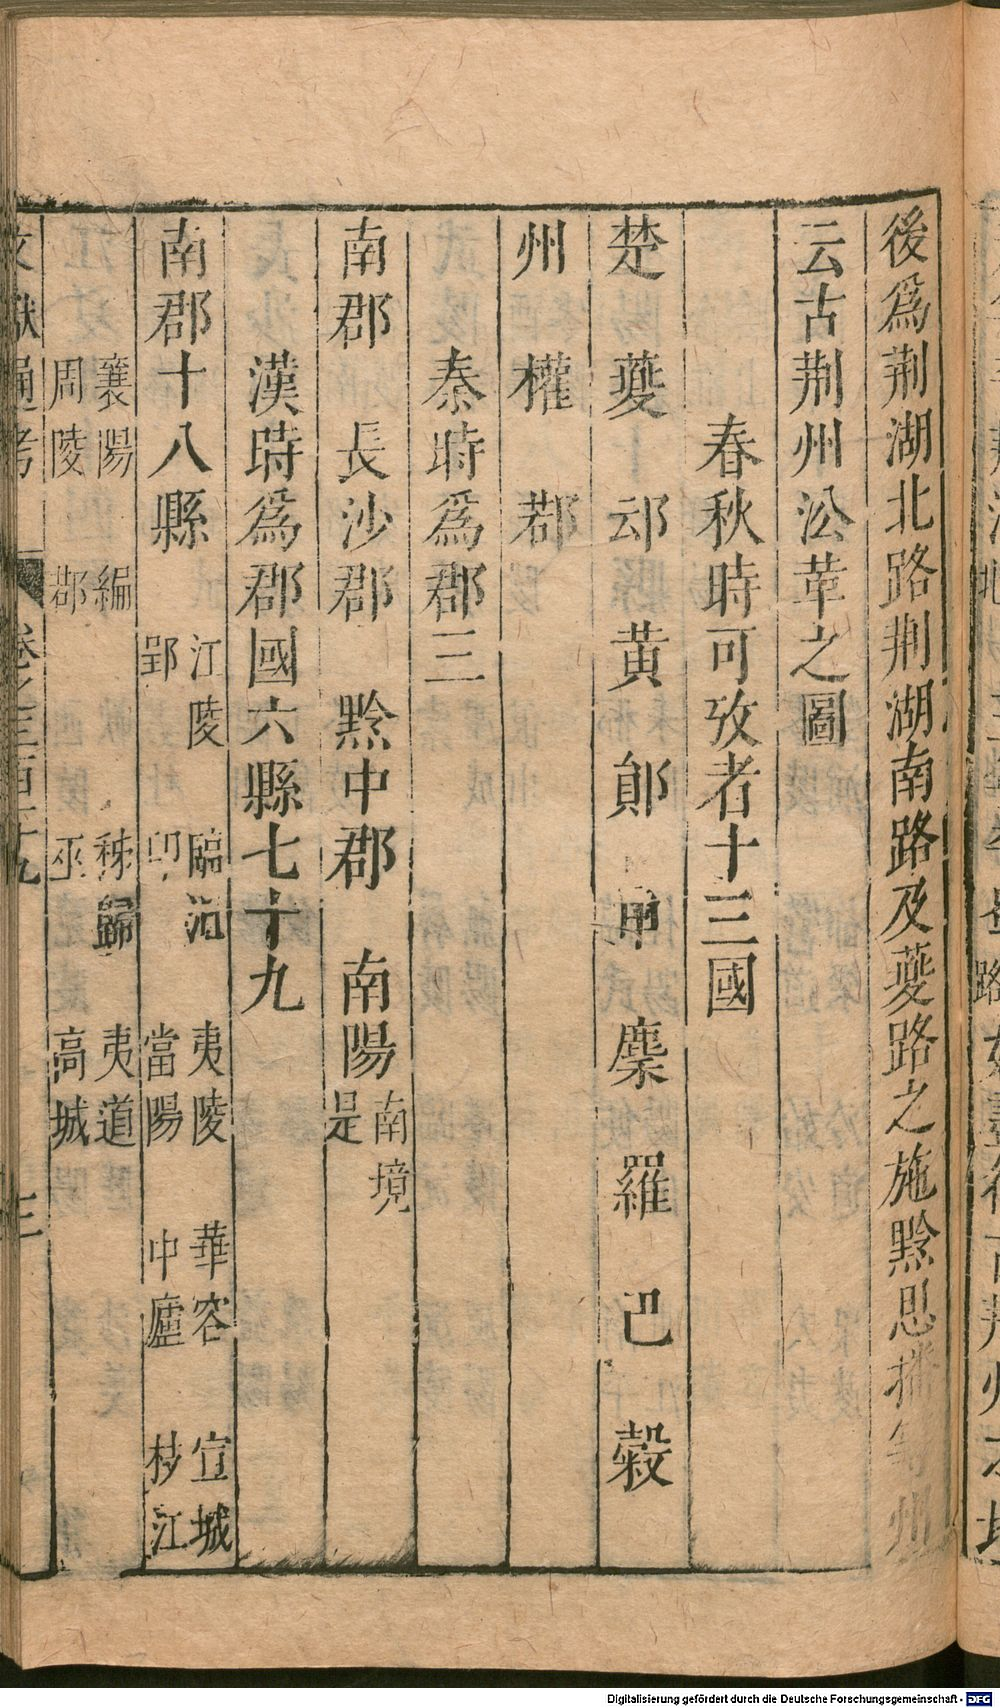 後為荆湖北路荆湖南路及夔路之施黔思播等州
云古荆州㳂革之圖
春秋時可攷者十三國
楚 夔 䢵 黄 鄖 鄾 麇 羅 巴 穀
州 權 鄀
秦時為郡三
南郡 長沙郡 黔中郡 南陽南境是
漢時為郡國六縣七十九
南郡十八縣 江陵 臨沮 夷陵 華容 宜城
郢 䢼 當陽 中廬 枝江
襄陽 編 秭歸 夷道
周陵 鄀 巫 高城
文獻通考 卷之三百十九 三
Digitalisierung gefördert durch die Deutsche Forschungsgemeinschaft - DFG